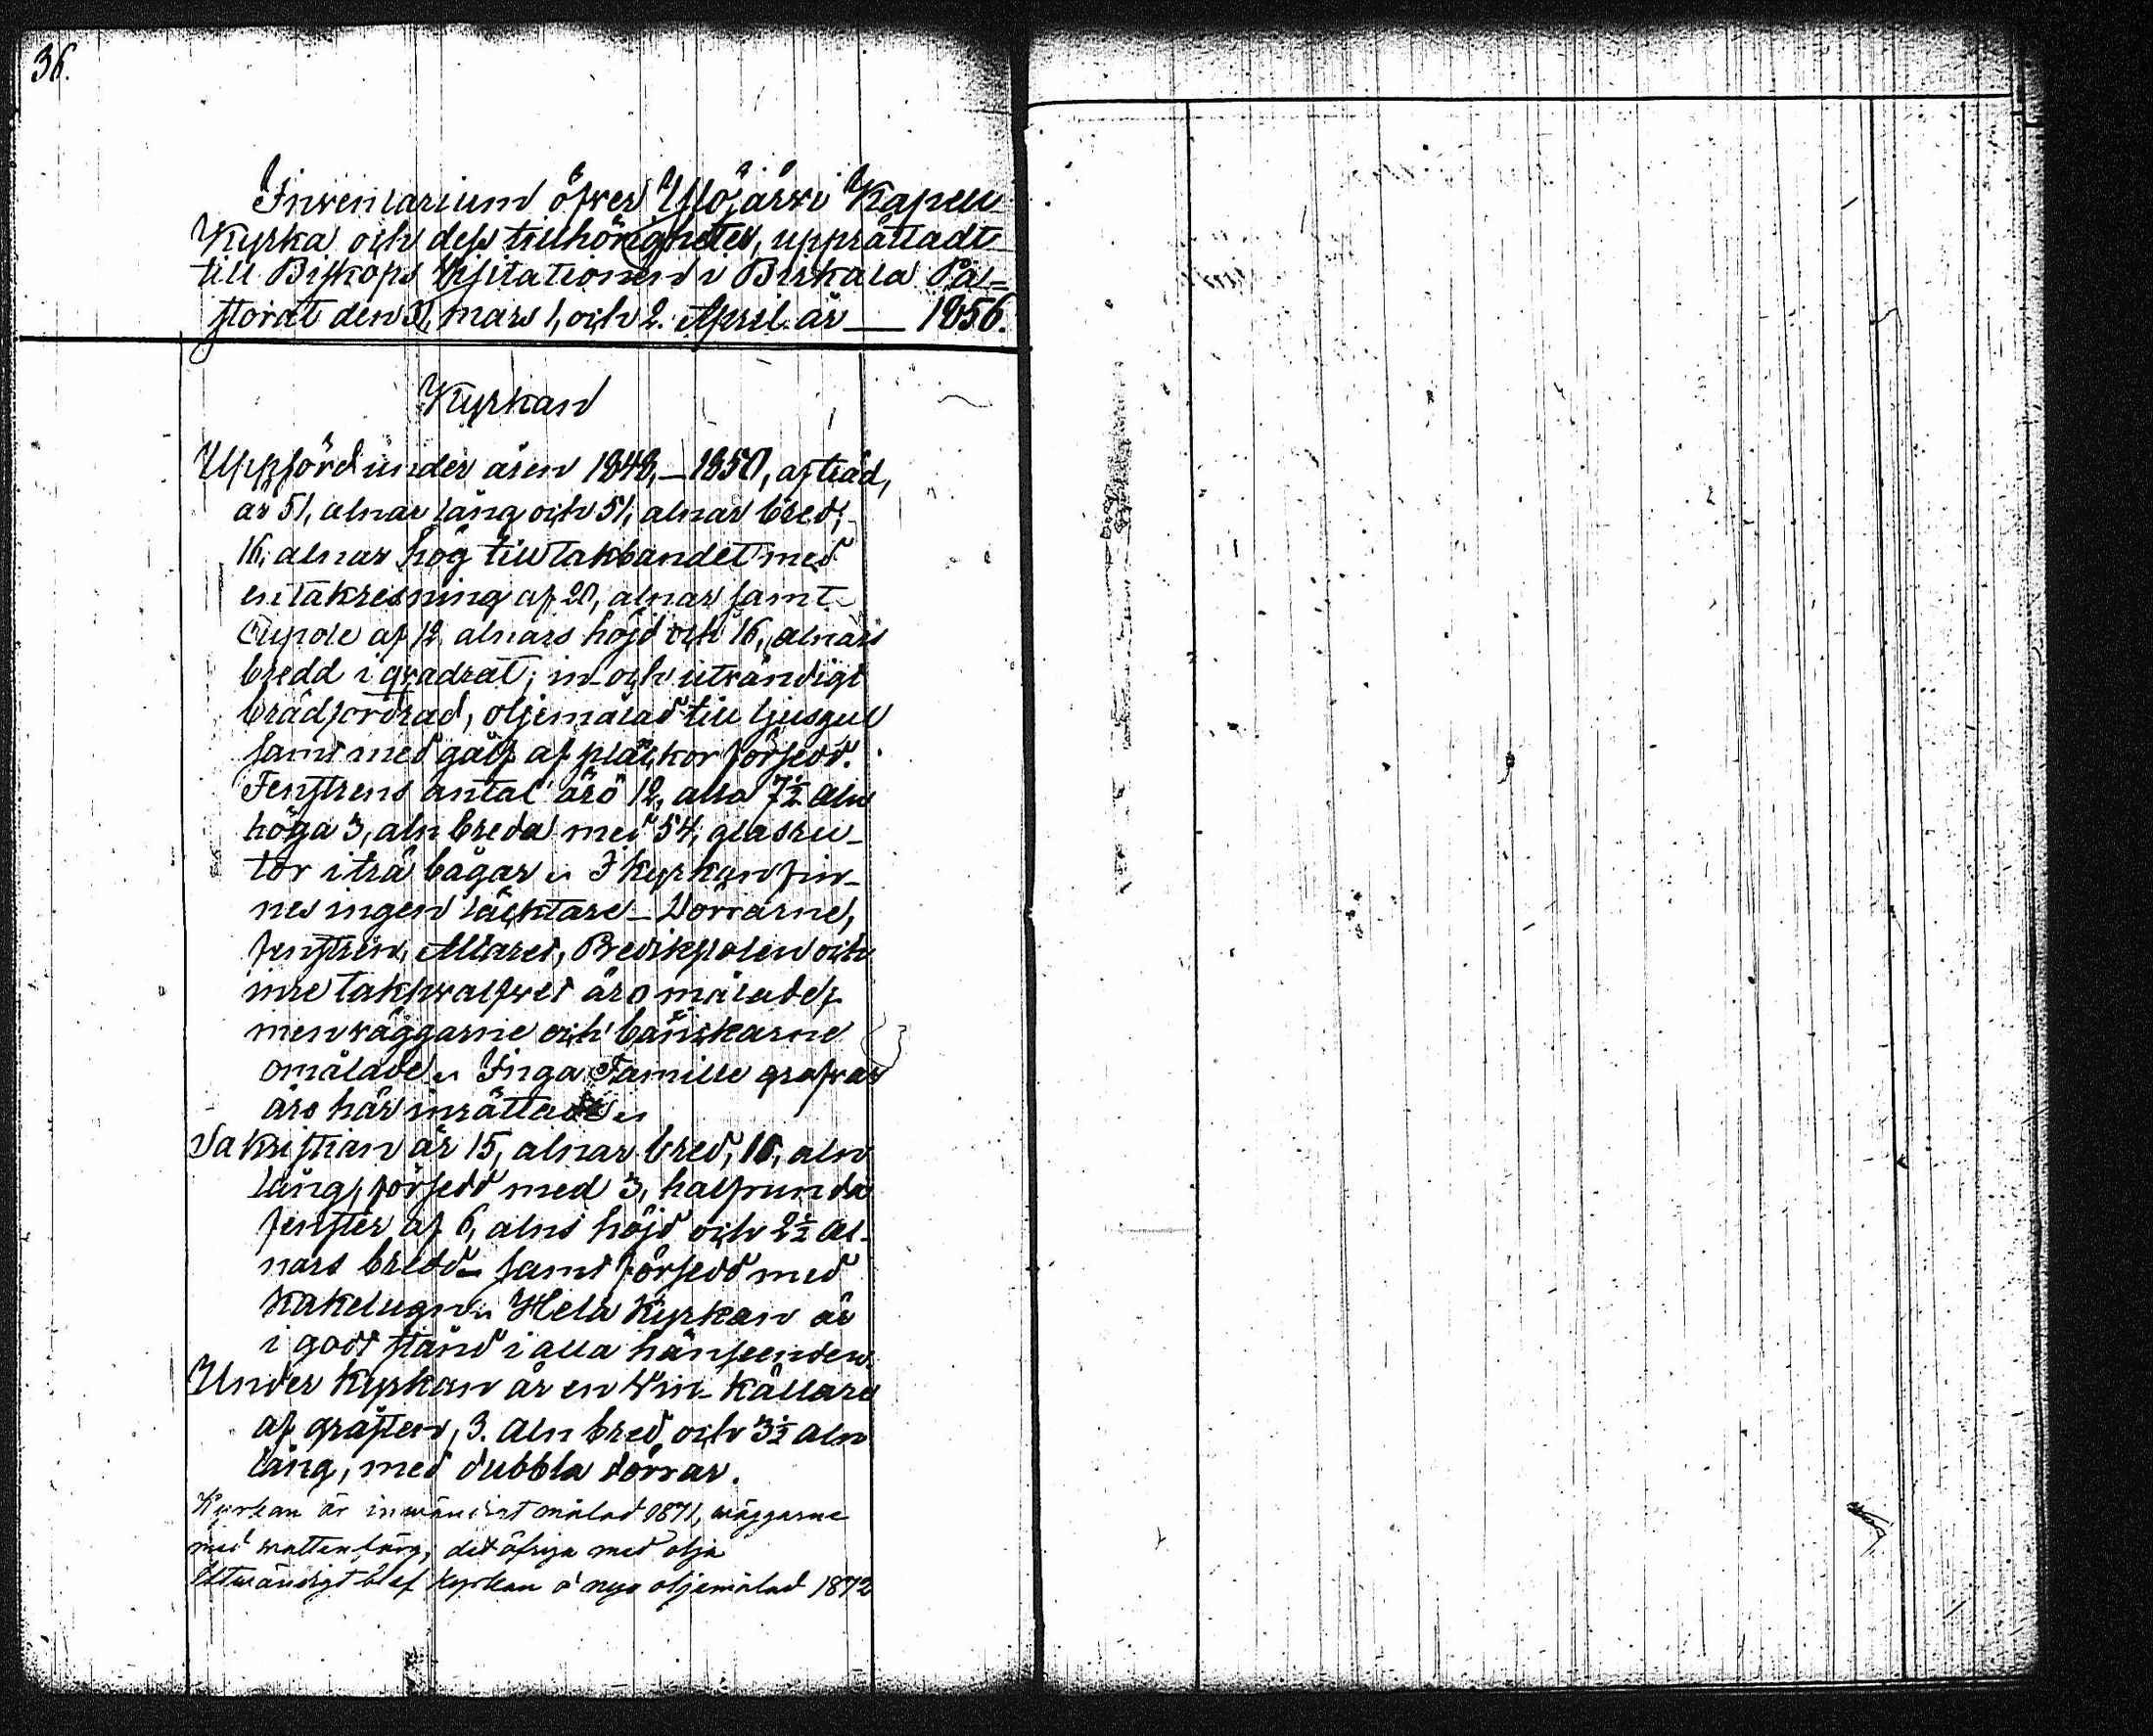 36.
Inventarium öfver Ylöjärvi Kapell
Kyrka och dess tillhörigheter, upprättadt
till Biskops Visitationen i Birkala Pa=
storat den 31, Mars 1, och 2. April. år — 1856.
Kyrkan
Uppförd under åren 1848, — 1850, af träd,
är 51, alnar lång och 51, alnar bred;
16, alnar hög till takbandet med
en takresning af 20, alnar samt
Cupole af 12 alnars höjd och 16, alnars
bredd i qvadrat; in- och utvändigt
brädfordrad, oljemålad till ljusgul
samt med golf af plankor försedd.
Fenstrens antal äro 12, alla 7½ aln
höga 3, aln breda med 54, glasru-
tor i trä bågar. I kyrkan fin-
nes ingen läcktare - Dörrarne,
fenstren, Altaret, Predikstolen och
inre takhvalfvet äro målade,
men väggarne och bänkarne
omålade. Inga Famille grafvar
äro här inrättade.
Sakristian är 15, alnar bred, 10, aln
lång, försedd med 3, halfrunda
fenster af 6, alns höjd och 2½ al-
nars bredd samt försedd med
kakelugn. Hela Kyrkan är
i godt stånd i alla hänseenden.
Under kyrkan är en Vin-Källare
af gråsten, 3. aln bred och 3½ aln
lång, med dubbla dörrar.
Kyrkan är inwändigt målad 1871, wäggarne
med wattenfärg, det öfriga med olja
Utwändigt blef kyrkan å nyo oljemålad 1872